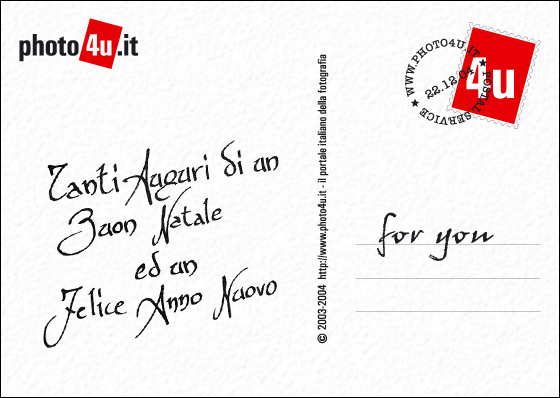 photo4u.it
Tanti Auguri di un
Buon Natale
ed un
Felice Anno Nuovo
© 2003-2004 http://www.photo4u.it - il portale italiano della fotografia
★ WWW.PHOTO4U.IT ★ POSTAL SERVICE
22.12.04
4u
for you